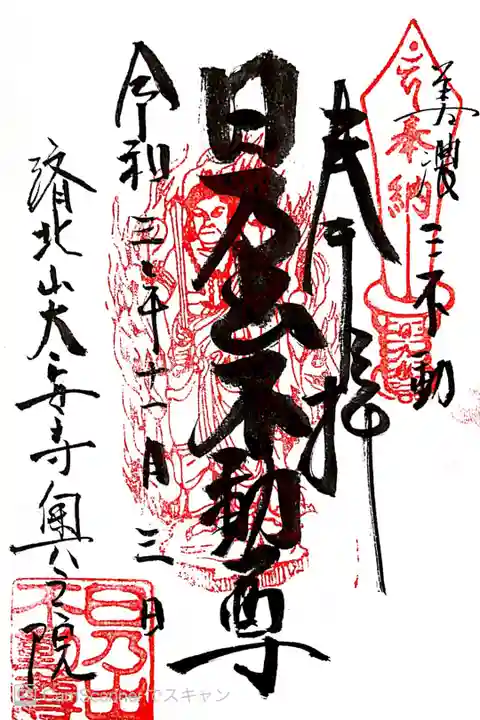 奉納
美濃三不動
奉拝
日乃出不動尊
令和三年十一月三日
済北山大安寺奥之院
日乃出
不動尊
CamScannerでスキャン